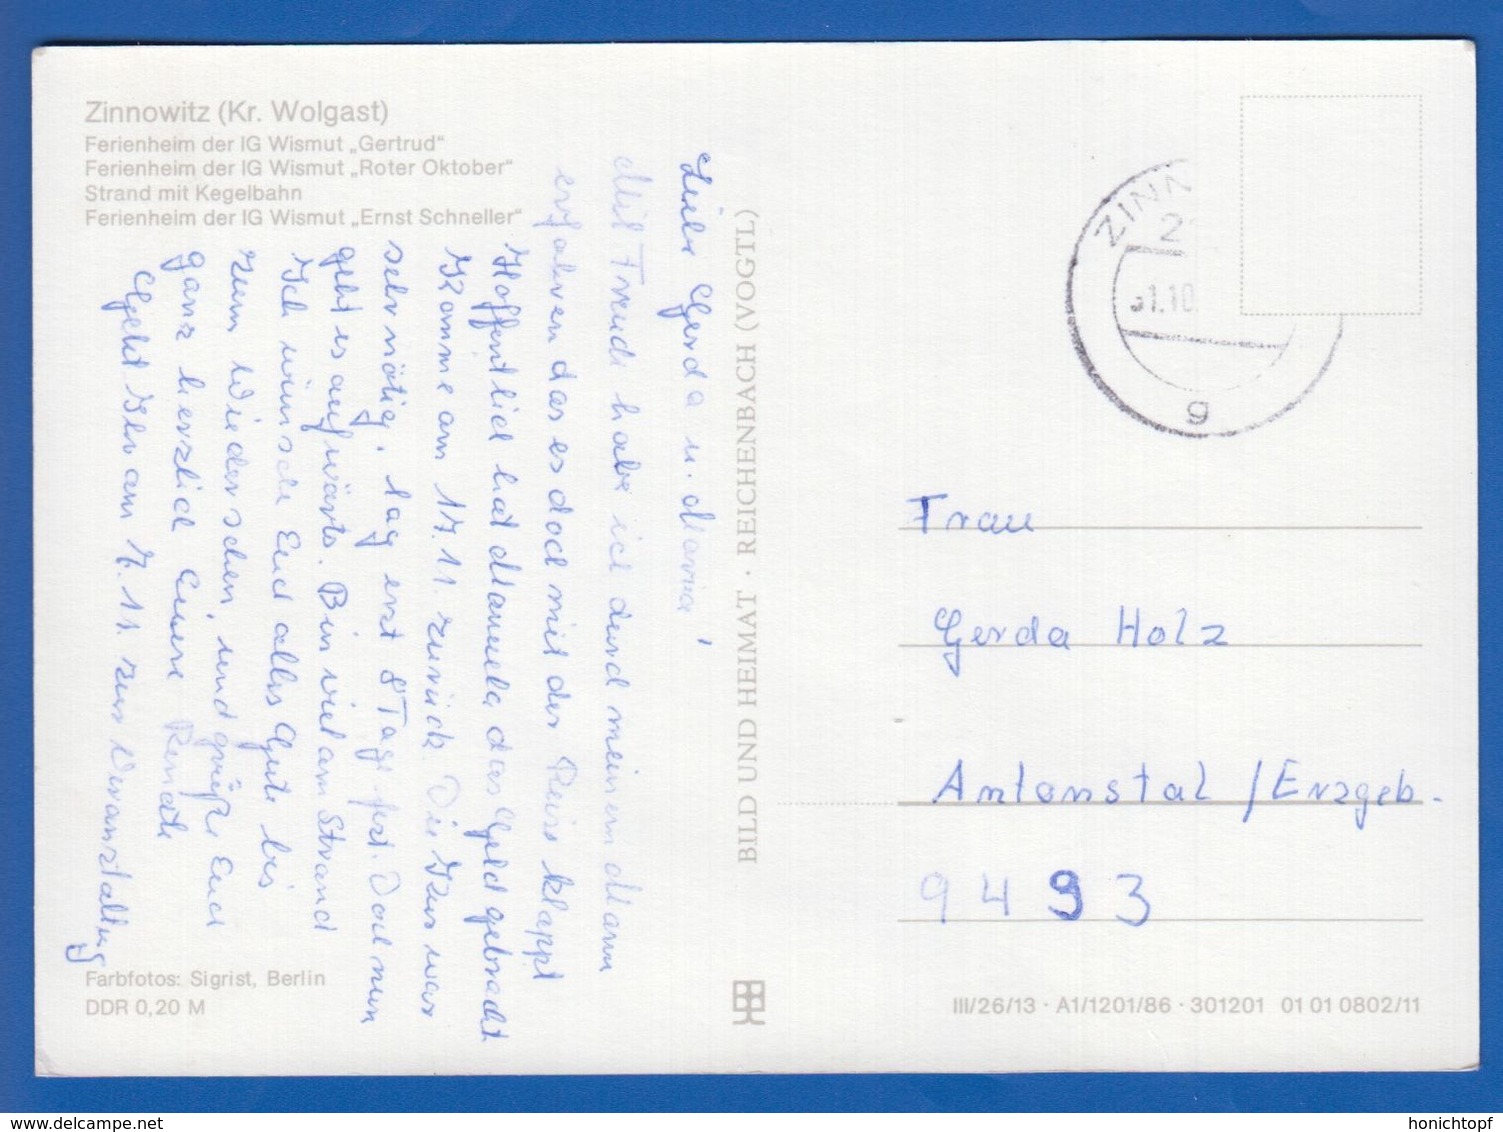 Zinnowitz (Kr. Wolgast)
Ferienheim der IG Wismut „Gertrud“
Ferienheim der IG Wismut „Roter Oktober“
Strand mit Kegelbahn
Ferienheim der IG Wismut „Ernst Schneller“
Liebe Gerda u. Maria!
Mit Freude habe ich durch meinem Mann
erfahren das es doch mit der Reise klappt
Hoffentlich hat Manuela das Geld gebracht
Komme am 17.11. zurück. Die Kur war
sehr nötig, lag erst 8 Tage fest. Doch nun
geht es aufwärts. Bin viel am Strand
Ich wünsche Euch alles Gute bis
zum Wiedersehen, und grüße Euch
ganz herzlich Eure Renate
Geht Ihr am 7.11. zur Veranstaltung
BILD UND HEIMAT · REICHENBACH (VOGTL)
ZINN
2
31.10.
g
Frau
Gerda Holz
Antonstal / Erzgeb.
9493
Farbfotos: Sigrist, Berlin
DDR 0,20 M
III/26/13 · A1/1201/86 · 301201 01 01 0802/11
www.delcampe.net
honichtopf